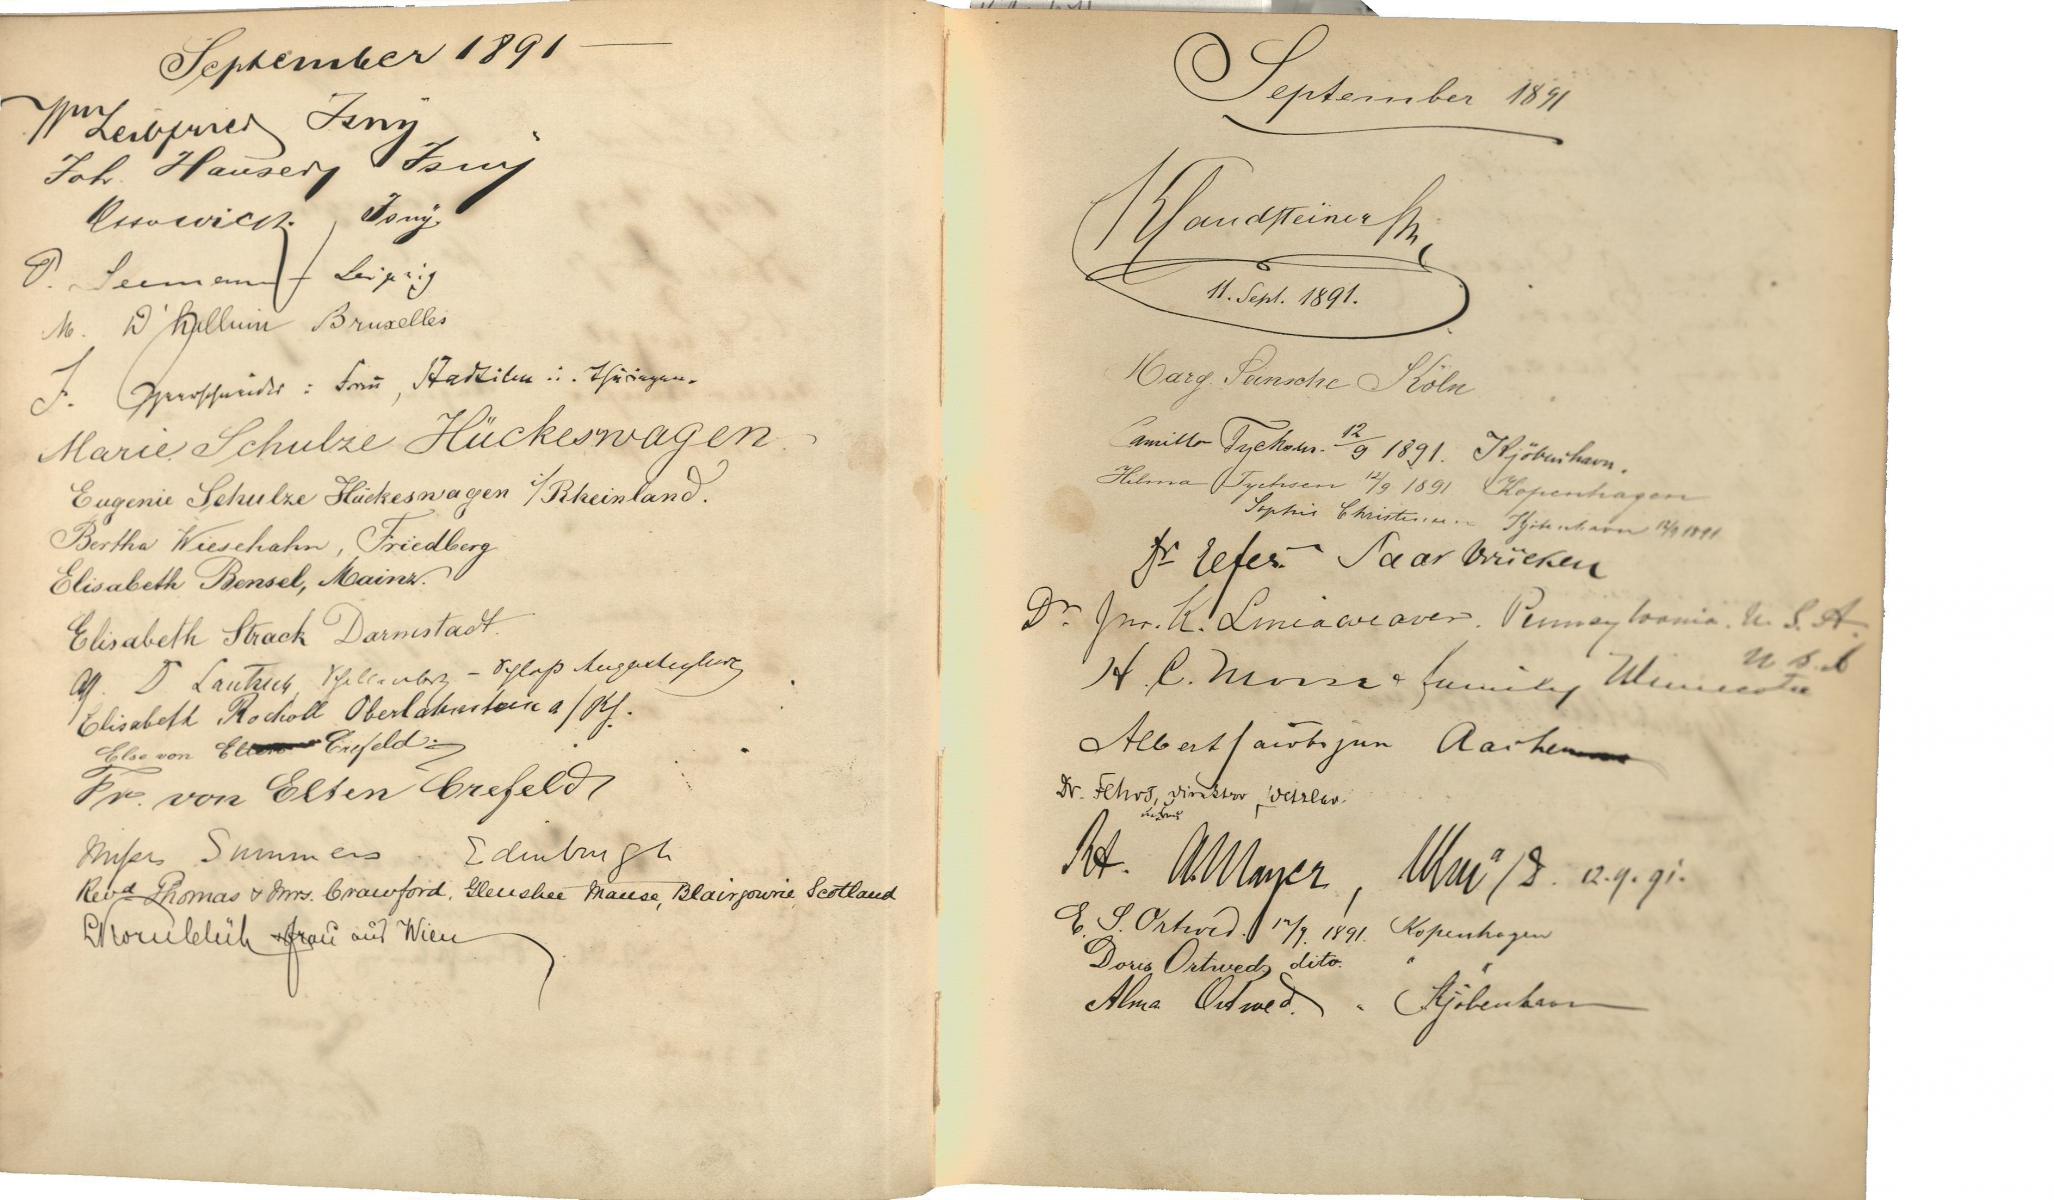 September 1891
Wm Leibfried Isny
Joh. Hauser Isny
Isny
P. Seemann Leipzig
M. D'Halluin Bruxelles
F. : Frau, Stadtilm i. Thüringen.
Marie Schulze Hückeswagen.
Eugenie Schulze Hückeswagen i/Rheinland.
Bertha Wiesehahn, Friedberg
Elisabeth Bensel, Mainz.
Elisabeth Strack Darmstadt.
D Schellenberg – Schloß Augustusburg
Elisabeth Rocholl Oberlahnstein a/Rh.
Else von Elten Crefeld
Fr. von Elten Crefeld
Misses Summers Edinburgh
Revd Thomas & Mrs. Crawford, Glenshee Manse, Blairgowrie, Scotland
Kornblüh & Frau aus Wien
September 1891
Landsteiner
11. Sept. 1891.
Marg. Köln
Camillo Tychsen. 12/9 1891. Kjöbenhavn.
Hilma Tychsen 12/9 1891 Kopenhagen
Sophie Christensen Kjöbenhavn 12/9 1891
Dr Saarbrücken
Dr. Jno. K. Lineaweaver. Pennsylvania. U. S. A.
H. C. Morse & family Minnesota U S A
Albert Jacobs jun Aachen
Dr. Direktor, Wetzlar.
Rt. A. Mayer, Ulm a/D. 12.9.91.
E. S. Ortved. 12/9. 1891. Kopenhagen
Doris Ortved dito. "
Alma Ortved. " Kjöbenhavn